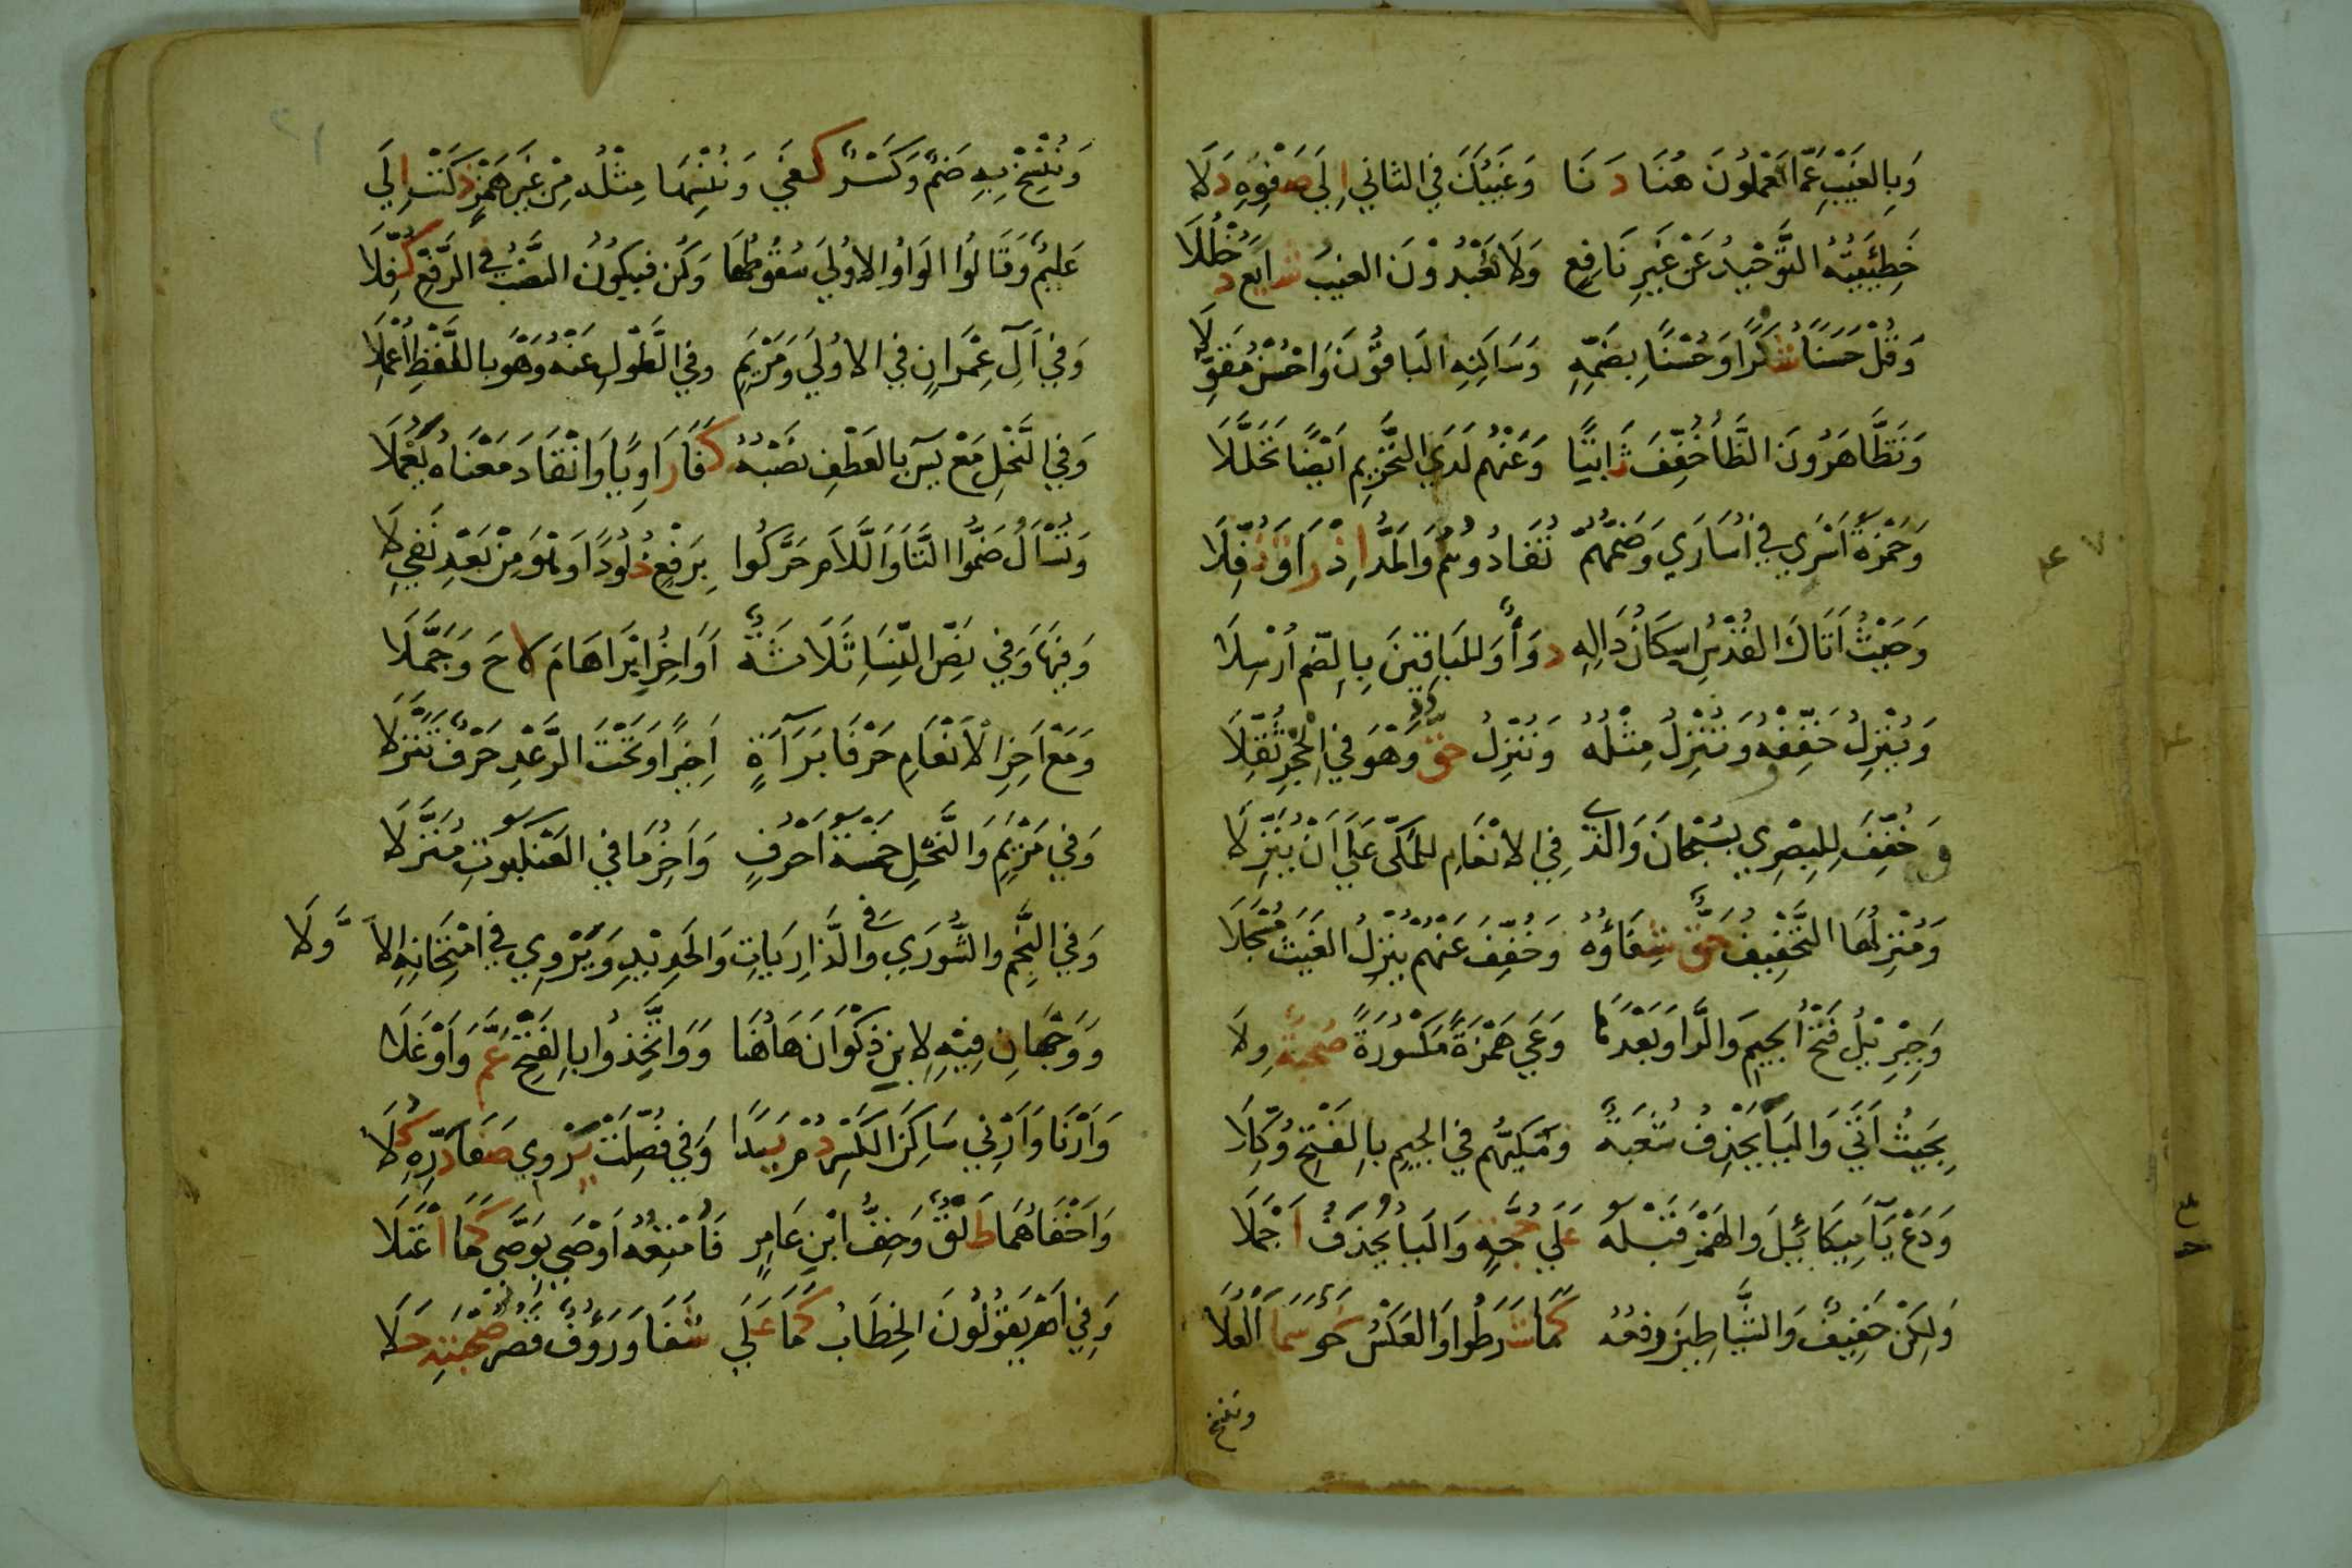 وَبِالغَيْبِ عَمَّا تَعْمَلُونَ هُنَا دَنَا وَغَيْبُكَ فِي الثَّانِي إِلَى صَفْوِهِ دَلَا
خَطِيئَتُهُ التَّوْحِيدُ عَنْ غَيْرِ نَافِعٍ وَلَا يَعْبُدُونَ الغَيْبَ شَايَعَ دُخْلُلَا
وَقُلْ حَسَنًا شُكْرًا وَحُسْنًا بِضَمِّهِ وَسَاكِنِهِ البَاقُونَ وَاحْسُنْ مُقَوِّلَا
وَتَظَّاهَرُونَ الظَّا خُفِّفَ ثَابِتًا وَعَنْهُمْ لَدَى التَّحْرِيمِ أَيْضًا تَحَلَّلَا
وَحَمْزَةُ أَسْرَى فِي أُسَارَى وَضَمُّهُمْ تُفَادُوهُمُ وَالمَدُّ إِذْ رَاقَ نُفِّلَا
وَحَيْثُ أَتَاكَ القُدْسُ إِسْكَانُ دَالِهِ دَوَاءٌ وَلِلبَاقِينَ بِالضَّمِّ أُرْسِلَا
وَيُنْزِلُ خَفِّفْهُ وَتُنْزِلُ مِثْلُهُ وَنُنْزِلُ حَقٌّ وَهْوَ فِي الحِجْرِ ثُقِّلَا
وَخُفِّفَ لِلبَصْرِي بِسُبْحَانَ وَالَّذِي فِي الانْعَامِ لِلمَكِّي عَلَى أَنْ يُنَزِّلَا
وَمُنْزِلُهَا التَّخْفِيفُ حَقٌّ شِفَاؤُهُ وَخُفِّفَ عَنْهُمْ يُنْزِلُ الغَيْثَ مُسْجَلَا
وَجِبْرِيلُ فَتْحُ الجِيمِ وَالرَّا وَبَعْدَهَا وَعَى هَمْزَةً مَكْسُورَةً صُحْبَةٌ وِلَا
بِحَيْثُ أَتَى وَاليَاءَ يَحْذِفُ شُعْبَةٌ وَمَكِّيُّهُمْ فِي الجِيمِ بِالفَتْحِ وُكِّلَا
وَدَعْ يَاءَ مِيكَائِيلَ وَالهَمْزَ قَبْلَهُ عَلَى حُجَّةٍ وَاليَاءُ يُحْذَفُ أَجْمَلَا
وَلَكِنْ خَفِيفٌ وَالشَّيَاطِينُ رَفْعُهُ كَمَا شَرَطُوا وَالعَكْسُ نَحْوٌ سَمَا العُلَا
وننسخ
وَنُنْسِخْ بِهِ ضَمٌّ وَكَسْرٌ كَفَى وَنُنْسِهَا مِثْلُهُ مِنْ غَيْرِ هَمْزٍ ذَكَتْ إِلَى
عَلِيمٌ وَقَالُوا الوَاوُ الاُولَى سُقُوطُهَا وَكُنْ فَيَكُونُ النَّصْبُ فِي الرَّفْعِ كُفِّلَا
وَفِي آلِ عِمْرَانٍ فِي الاُولَى وَمَرْيَمٍ وَفِي الطَّوْلِ عَنْهُ وَهْوَ بِاللَّفْظِ أُعْمِلَا
وَفِي النَّحْلِ مَعْ يس بِالعَطْفِ نَصْبُهُ كَفَا رَاوِيًا وَانْقَادَ مَعْنَاهُ يَعْمَلَا
وَتُسْأَلُ ضَمُّوا التَّاءَ وَاللَّامَ حَرَّكُوا بِرَفْعٍ خُلُودًا وَهْوَ مِنْ بَعْدِ نَفْيِ لَا
وَفِيهَا وَفِي نَصِّ النِّسَاءِ ثَلَاثَةٌ أَوَاخِرُ إِبْرَاهَامَ لَاحَ وَجَمَّلَا
وَمَعْ آخِرِ الأَنْعَامِ حَرْفَا بَرَاءَةٍ أَخِيرًا وَتَحْتَ الرَّعْدِ حَرْفٌ تَنَزَّلَا
وَفِي مَرْيَمٍ وَالنَّحْلِ خَمْسَةُ أَحْرُفٍ وَآخِرُ مَا فِي العَنْكَبُوتِ مُنَزَّلَا
وَفِي النَّجْمِ وَالشُّورَى وَفِي الذَّارِيَاتِ وَالحَدِيدِ وَيَرْوِي فِي امْتِحَانِهِ الاَوَّلَا
وَوَجْهَانِ فِيهِ لِابْنِ ذَكْوَانَ هَاهُنَا وَوَاتَّخَذُوا بِالفَتْحِ عَمَّ وَأَوْغَلَا
وَأَرْنَا وَأَرْنِي سَاكِنَا الكَسْرِ دُمْ يَدًا وَفِي فُصِّلَتْ يُرْوِي صَفَا دَرِّهِ كُلَا
وَأَخْفَاهُمَا طَلْقٌ وَخِفُّ ابْنِ عَامِرٍ فَأُمْتِعُهُ أَوْصَى بِوَصَّى كَمَا اعْتَلَا
وَفِي أَمْ يَقُولُونَ الخِطَابُ كَمَا عَلَى شَفَا وَرَؤُفٌ قَصْرُ صُحْبَتِهِ حَلَا